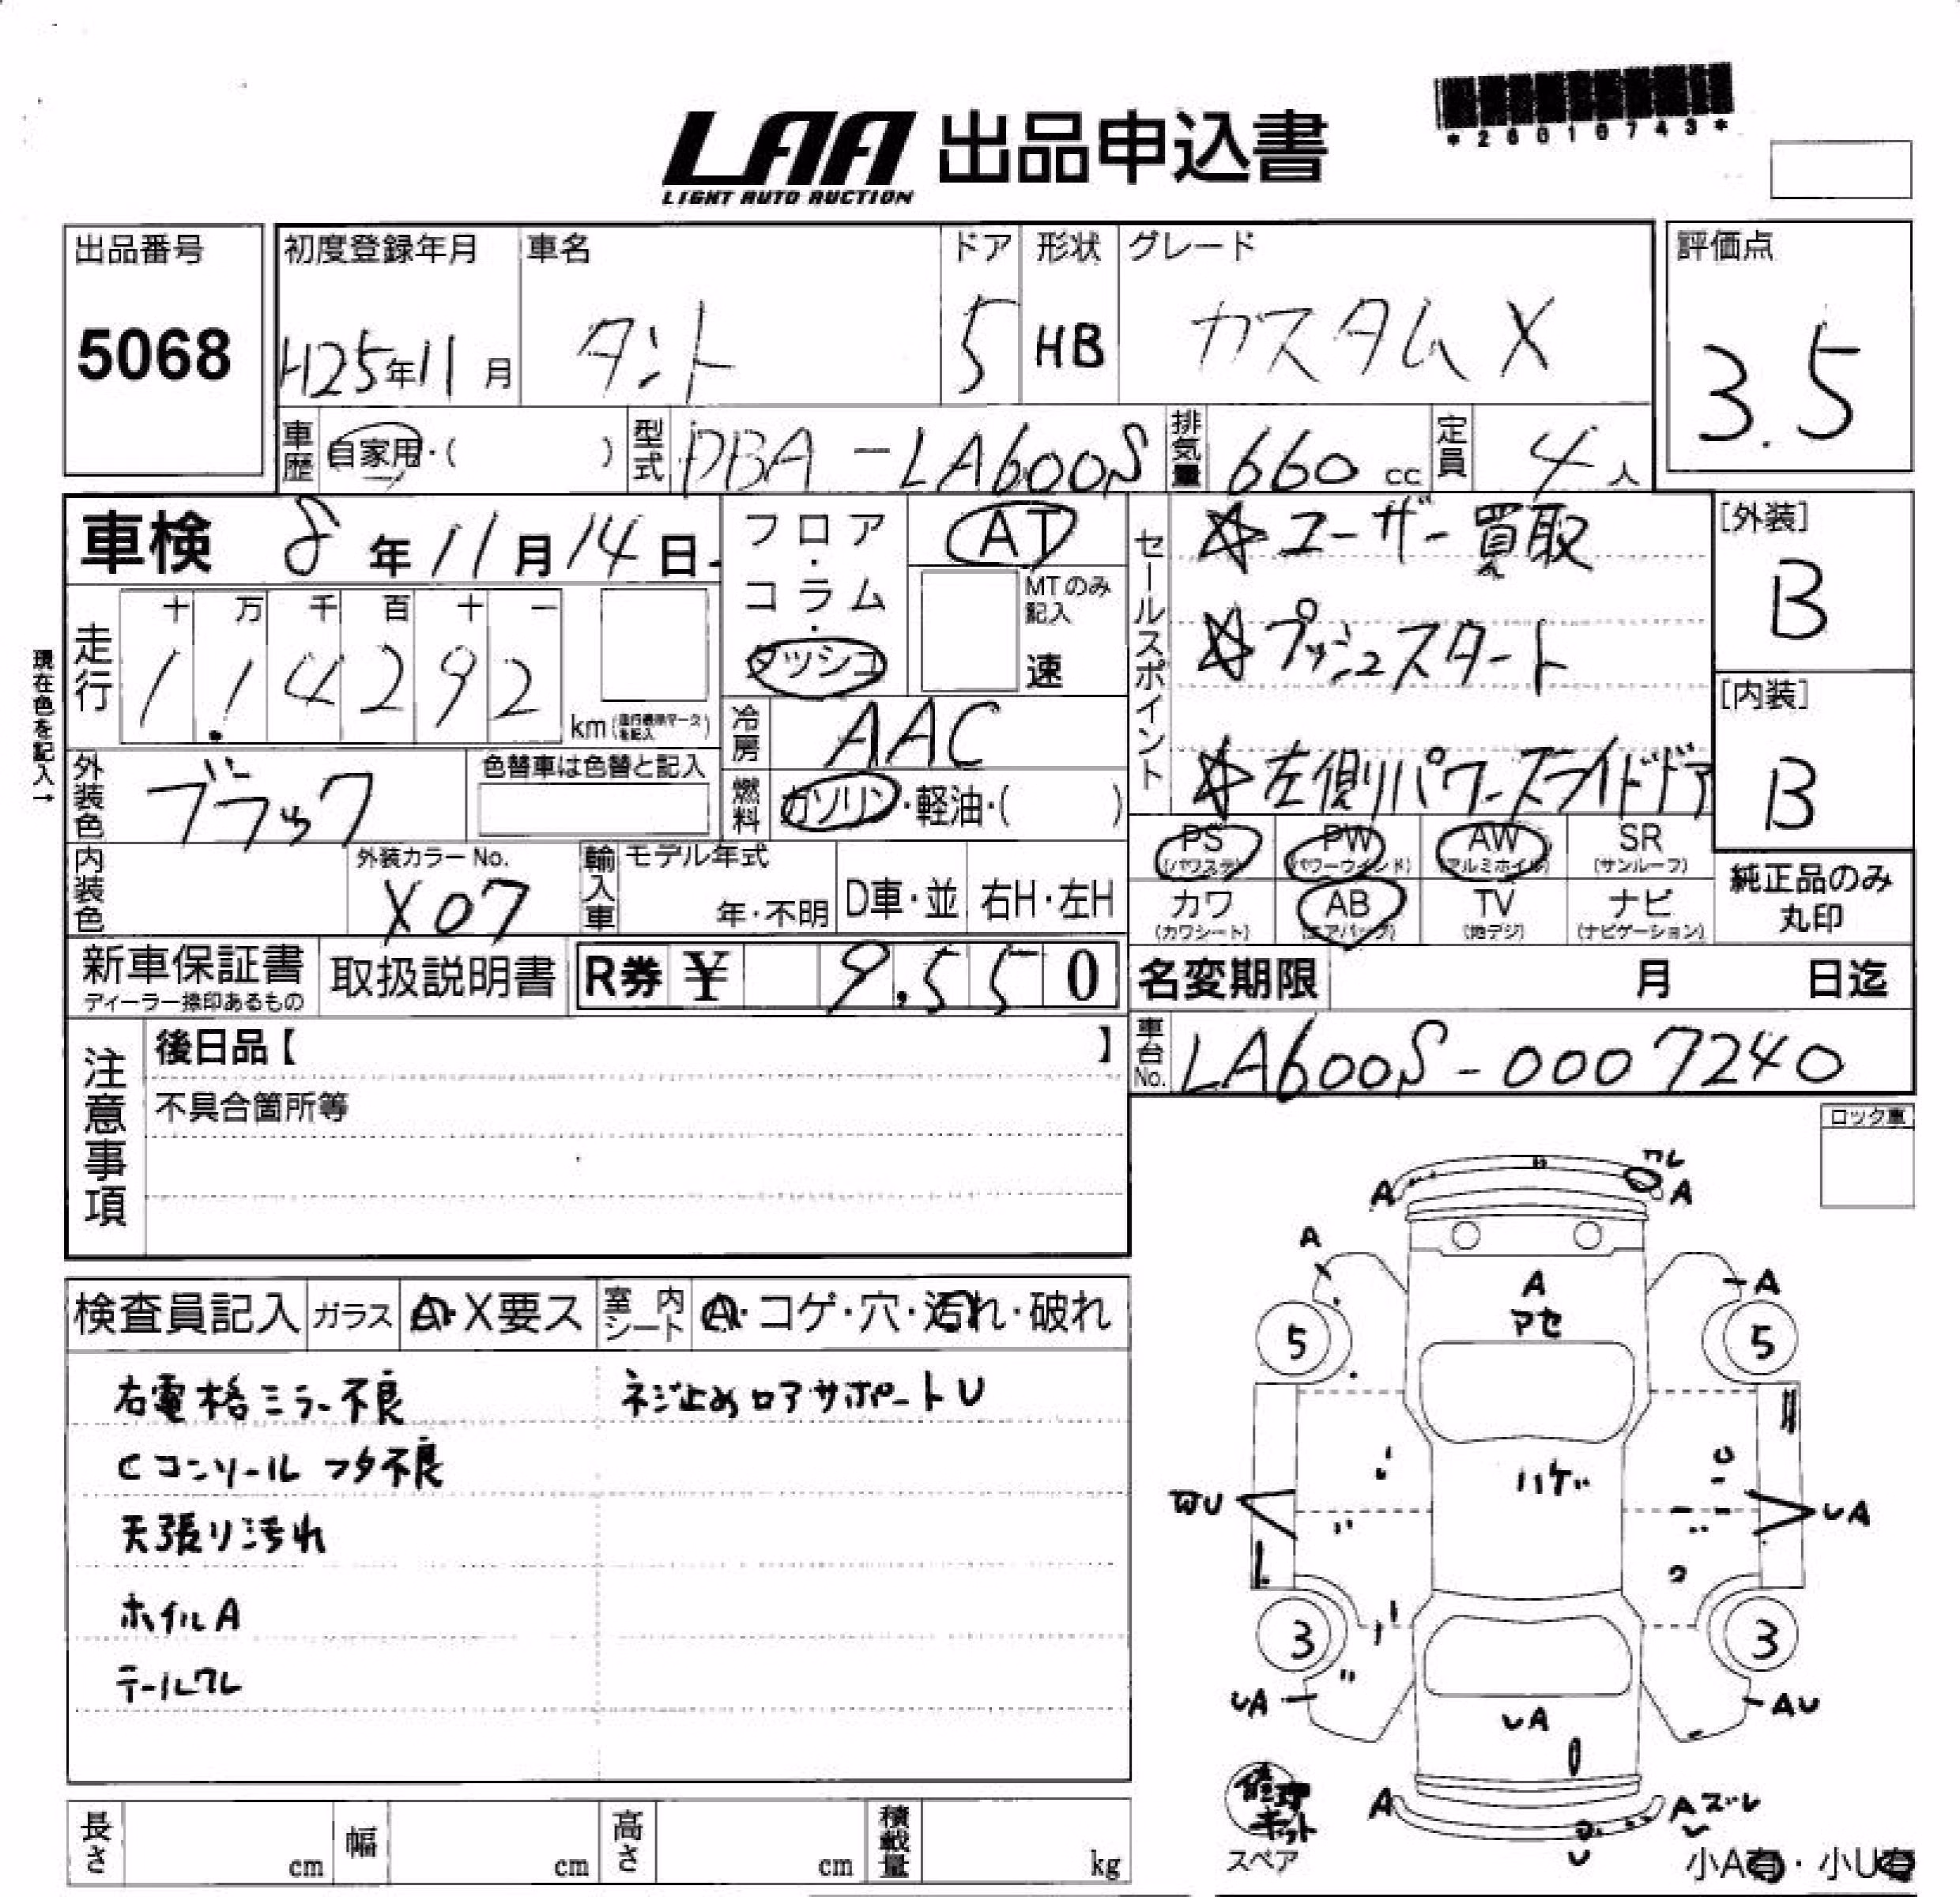 LAA 出品申込書
LIGHT AUTO AUCTION
出品番号
5068
初度登録年月
H25年11月
車名
タント
ドア
5
形状
HB
グレード
カスタムX
評価点
3.5
車歴
自家用・( )
型式
DBA-LA600S
排気量
660 cc
定員
4人
車検 8年11月14日
フロア・コラム・ダッシュ
AT
MTのみ記入
速
セールスポイント
☆ユーザー買取
☆プッシュスタート
☆左側パワースライドドア
[外装]
B
[内装]
B
現在色を記入→
走行
十 万 千 百 十 一
1 1. 4 2 9 2
km
冷房
AAC
外装色
ブラック
色替車は色替と記入
燃料
ガソリン・軽油・( )
内装色
外装カラーNo.
X07
輸入車
モデル年式
年・不明
D車・並
右H・左H
PS
(パワステ)
PW
(パワーウインド)
AW
(アルミホイル)
SR
(サンルーフ)
カワ
(カワシート)
AB
(エアバッグ)
TV
(地デジ)
ナビ
(ナビゲーション)
純正品のみ
丸印
新車保証書
ディーラー捺印あるもの
取扱説明書
R券 ¥ 9,550
名変期限 月 日迄
車台No.
LA600S-0007240
注意事項
後日品【 】
不具合箇所等
ロック車
検査員記入
ガラス
A・X要ス
室内シート
A・コゲ・穴・汚れ・破れ
右電格ミラー不良
ネジ止めロアサポートU
Cコンソールフタ不良
天張り汚れ
ホイルA
テールワレ
A
A
A
A
A
アセ
5
5
ハゲ
UA
3
3
UA
AU
UA
A
Aズレ
U
修理キット
スペア
小A有・小U有
長さ cm
幅 cm
高さ cm
積載量 kg